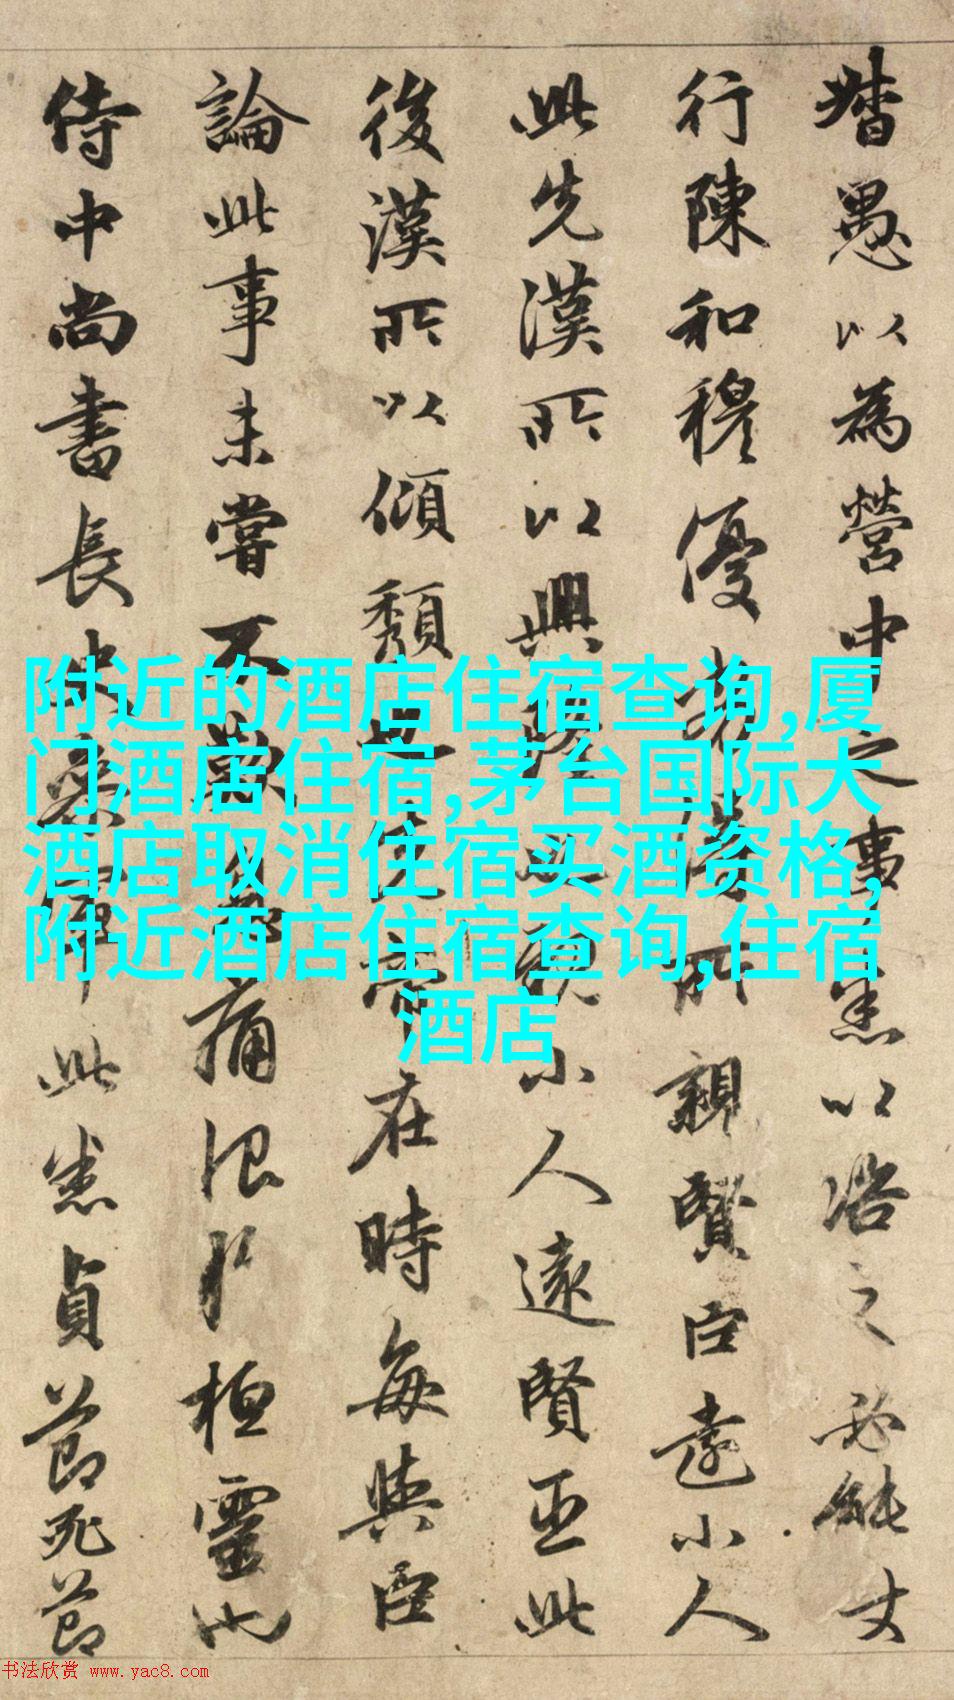 督愚以為營中之事悉以咨之必能使
行陳和穆優劣得所親賢臣遠小人
此先漢所以興隆也親小人遠賢臣此
後漢所以傾頹也先帝在時每與臣
論此事未嘗不歎息痛恨於桓靈也
侍中尚書長史參軍此悉貞節死節
附近的酒店住宿查询,厦
门酒店住宿,茅台国际大
酒店取消住宿买酒资格,
附近酒店住宿查询,住宿
酒店
书法欣赏 www.yac8.com